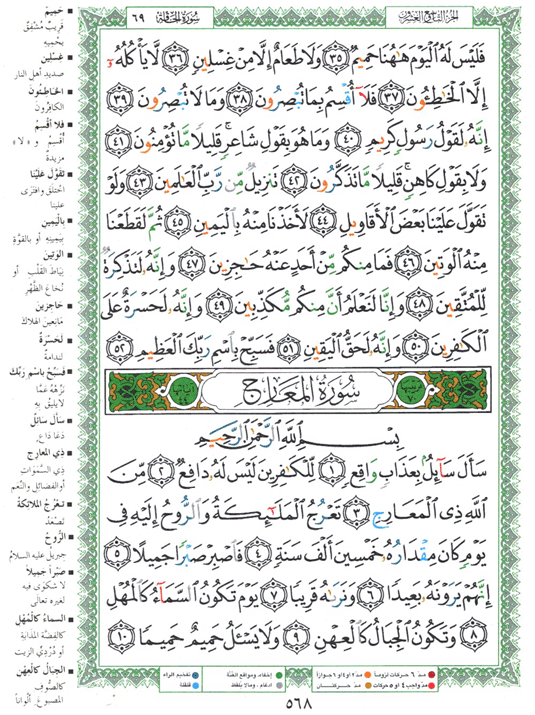 الجزء التاسع والعشرون
سورة الحاقة
٦٩
فَلَيْسَ لَهُ الْيَوْمَ هَٰهُنَا حَمِيمٌ ٣٥ وَلَا طَعَامٌ إِلَّا مِنْ غِسْلِينٍ ٣٦ لَّا يَأْكُلُهُ
إِلَّا الْخَٰطِئُونَ ٣٧ فَلَا أُقْسِمُ بِمَا تُبْصِرُونَ ٣٨ وَمَا لَا تُبْصِرُونَ ٣٩
إِنَّهُ لَقَوْلُ رَسُولٍ كَرِيمٍ ٤٠ وَمَا هُوَ بِقَوْلِ شَاعِرٍ قَلِيلًا مَّا تُؤْمِنُونَ ٤١
وَلَا بِقَوْلِ كَاهِنٍ قَلِيلًا مَّا تَذَكَّرُونَ ٤٢ تَنزِيلٌ مِّن رَّبِّ الْعَٰلَمِينَ ٤٣ وَلَوْ
تَقَوَّلَ عَلَيْنَا بَعْضَ الْأَقَاوِيلِ ٤٤ لَأَخَذْنَا مِنْهُ بِالْيَمِينِ ٤٥ ثُمَّ لَقَطَعْنَا
مِنْهُ الْوَتِينَ ٤٦ فَمَا مِنكُم مِّنْ أَحَدٍ عَنْهُ حَٰجِزِينَ ٤٧ وَإِنَّهُ لَتَذْكِرَةٌ
لِّلْمُتَّقِينَ ٤٨ وَإِنَّا لَنَعْلَمُ أَنَّ مِنكُم مُّكَذِّبِينَ ٤٩ وَإِنَّهُ لَحَسْرَةٌ عَلَى
الْكَٰفِرِينَ ٥٠ وَإِنَّهُ لَحَقُّ الْيَقِينِ ٥١ فَسَبِّحْ بِاسْمِ رَبِّكَ الْعَظِيمِ ٥٢
سُورَةُ الْمَعَارِجِ
بِسْمِ اللَّهِ الرَّحْمَٰنِ الرَّحِيمِ
سَأَلَ سَائِلٌ بِعَذَابٍ وَاقِعٍ ١ لِّلْكَٰفِرِينَ لَيْسَ لَهُ دَافِعٌ ٢ مِّنَ
اللَّهِ ذِي الْمَعَارِجِ ٣ تَعْرُجُ الْمَلَٰئِكَةُ وَالرُّوحُ إِلَيْهِ فِي
يَوْمٍ كَانَ مِقْدَارُهُ خَمْسِينَ أَلْفَ سَنَةٍ ٤ فَاصْبِرْ صَبْرًا جَمِيلًا ٥
إِنَّهُمْ يَرَوْنَهُ بَعِيدًا ٦ وَنَرَىٰهُ قَرِيبًا ٧ يَوْمَ تَكُونُ السَّمَاءُ كَالْمُهْلِ
٨ وَتَكُونُ الْجِبَالُ كَالْعِهْنِ ٩ وَلَا يَسْـَٔلُ حَمِيمٌ حَمِيمًا ١٠
حَمِيمٌ
قريبٌ مُشْفِقٌ
يحْميه
غِسْلِين
صديدِ أهل النار
الخاطئون
الكافِرُون
فلا أقسِمُ
أقسِمُ و «لا»
مزيدة
تقوّل علينا
اختلَق وافترى
علينا
باليمين
بيمينه أو بالقوّة
الوَتين
نِياطَ القلْبِ أو
نُخاعَ الظّهْرِ
حاجزين
مانعينَ الهلاك
لحسرةٌ
لندامة
فسبّح باسم ربّك
نزّهه عمّا
لا يليق به
سأل سائلٌ
دعا داعٍ
ذي المعارج
ذي السموات
أو الفضائل والنّعم
تعرُج الملائكة
تصْعَدُ
الرّوح
جبريل عليه السلام
صبراً جميلاً
لا شكوى فيه
لغيره تعالى
السماءُ كالمُهْل
كالفضة المذابة
أو دُرْدِيّ الزيت
الجبال كالعِهْن
كالصّوف
المصبوغ ألواناً
مد ٦ حركات لزوماً
مد ٢ او ٤ او ٦ جوازاً
إخفاء، ومواقع الغُنَّة
تفخيم الراء
مد واجب ٤ أو ٥ حركات
مد حركتان
ادغام، وما لا يلفظ
قلقلة
٥٦٨